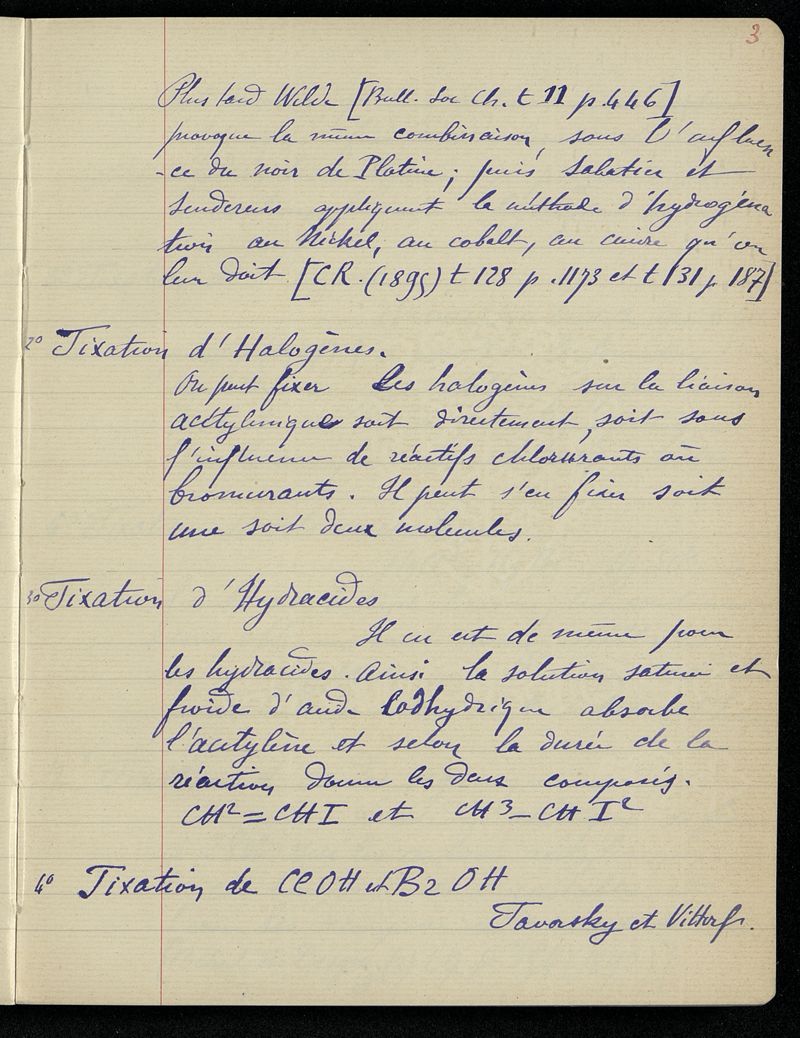 3
Plus tard Wilde [Bull. Soc Ch. t 11 p. 446]
provoque la même combinaison, sous l'influen
-ce du noir de Platine; puis Sabatier et
Senderens appliquent la méthode d'hydrogéna
tion au Nickel, au cobalt, au cuivre qu'on
leur doit [CR. (1899) t 128 p. 1173 et t 131 p 187]
2° Fixation d'Halogènes.
On peut fixer les halogènes sur la liaison
acétylenique soit directement, soit sous
l'influence de réactifs chlorurants ou
bromurants. Il peut s'en fixer soit
une soit deux molecules.
3° Fixation d'Hydracides
Il en est de même pour
les hydracides. Ainsi la solution saturée et
froide d'acide Iodhydrique absorbe
l'acétylène et selon la durée de la
réaction donne les deux composés.
CH²=CHI et CH³-CHI²
4° Fixation de ClOH et B2OH
Favorsky et